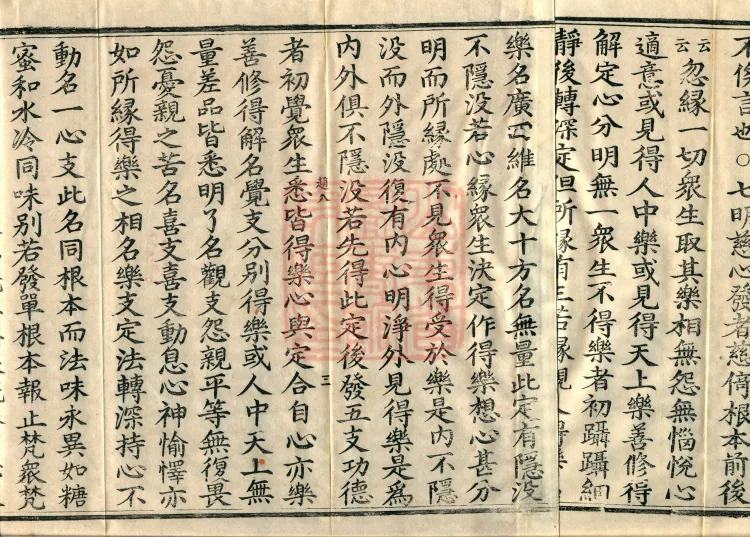 不復言也○七明慈心發者慈俻根本前後
云云忽縁一切衆生取其樂相無怨無惱悅心
適意或見得人中樂或見得天上樂善修得
解定心分明無一衆生不得樂者初躡躡細
靜後轉深定但所縁有三若縁親人得樂
樂名廣四維名大十方名無量此定有隱没
不隱没若心緣衆生決定作得樂想心甚分
明而所縁處不見衆生得受於樂是内不隱
没而外隱没復有内心明淨外見得樂是爲
内外俱不隱没若先得此定後發五支功德
者初覺衆生悉皆得樂心與定合自心亦樂
趙八
三
善修得解名覺支分別得樂或人中天上無
量差品皆悉明了名觀支怨親平等無復畏
怨憂親之苦名喜支喜支動息心神愉懌亦
如所縁得樂之相名樂支定法轉深持心不
動名一心支此名同根本而法味永異如糖
蜜和水冷同味別若發單根本報止梵衆梵